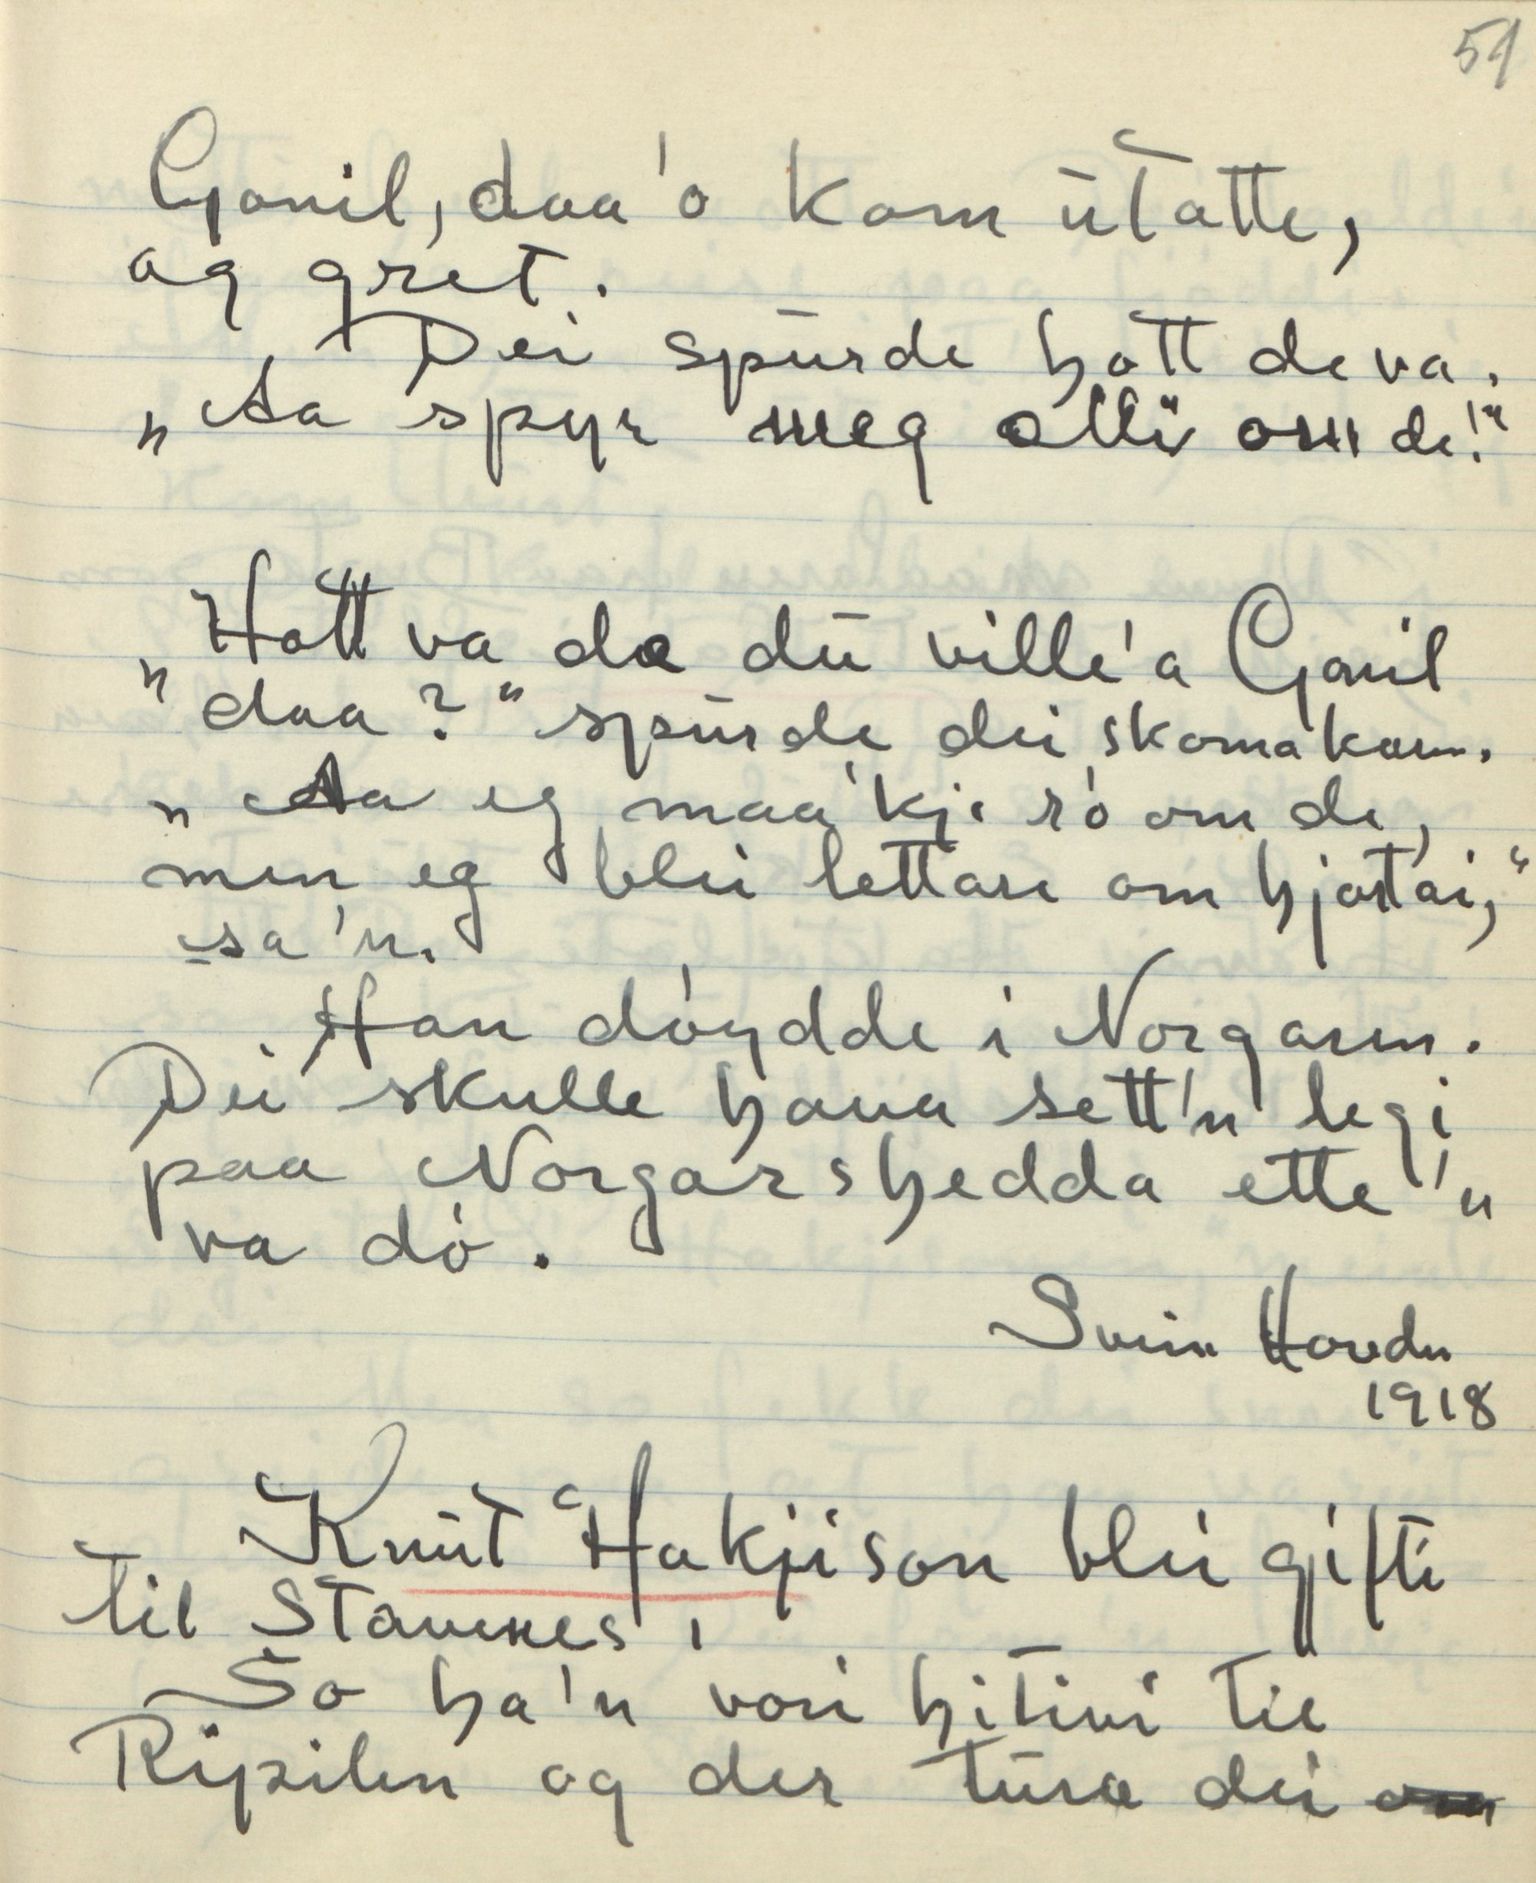 51
Gonil, daa'o kom ūtatte,
ag gret.
Dei spūrde hott de va.
„Aa spyr meg alli om de!"
„Hott va de dū ville'a Gonil
daa?" spūrde dei skomakarn.
„Aa eg maa'kje ró om de,
men eg blei lettare om hjarta i,"
sa'n.
Han dóydde i Norgaren.
Dei skulle hava sett'n legi
paa Norgarshedda ette'n
va dó.
Svein Hovdn
1918
Knūt Hakjeson blei gjifte
til Stavenes,
So ha'n vori hitivi til
Ripilen og der tūra dei